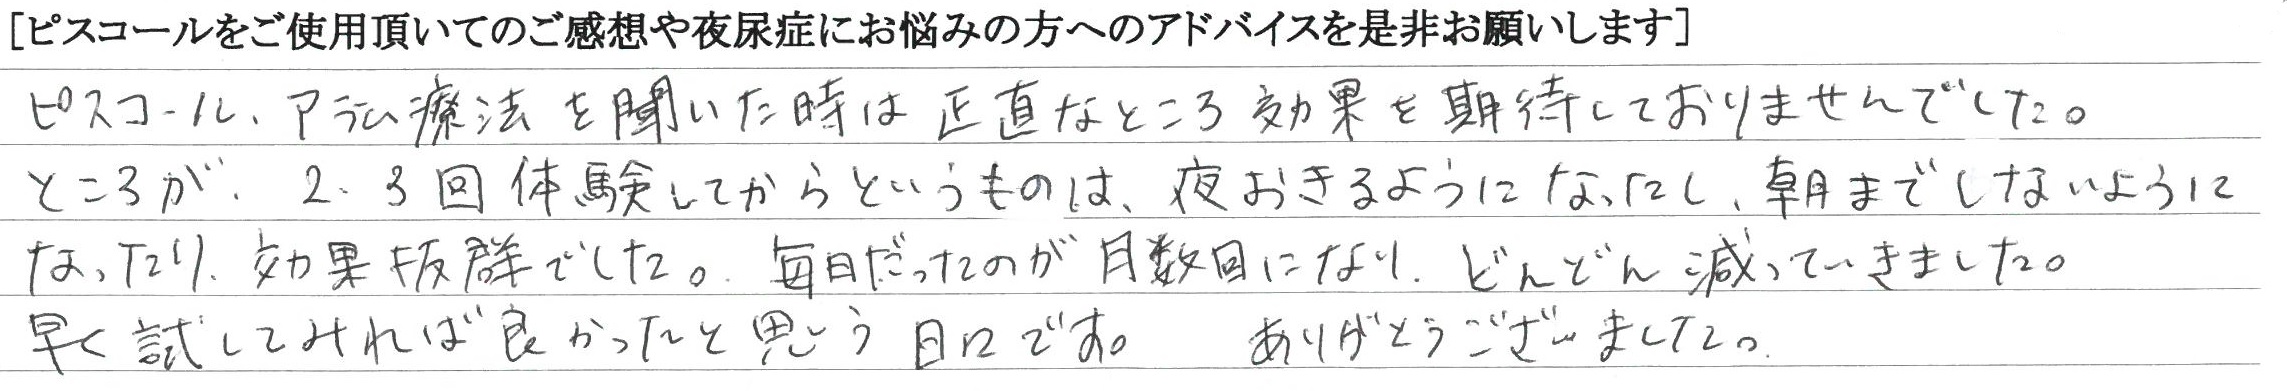 [ピスコールをご使用頂いてのご感想や夜尿症にお悩みの方へのアドバイスを是非お願いします]
ピスコール、アラーム療法を聞いた時は正直なところ効果を期待しておりませんでした。
ところが、2、3回体験してからというものは、夜おきるようになったし、朝までしないように
なったり、効果抜群でした。毎日だったのが月数回になり、どんどん減っていきました。
早く試してみれば良かったと思う日々です。 ありがとうございました。